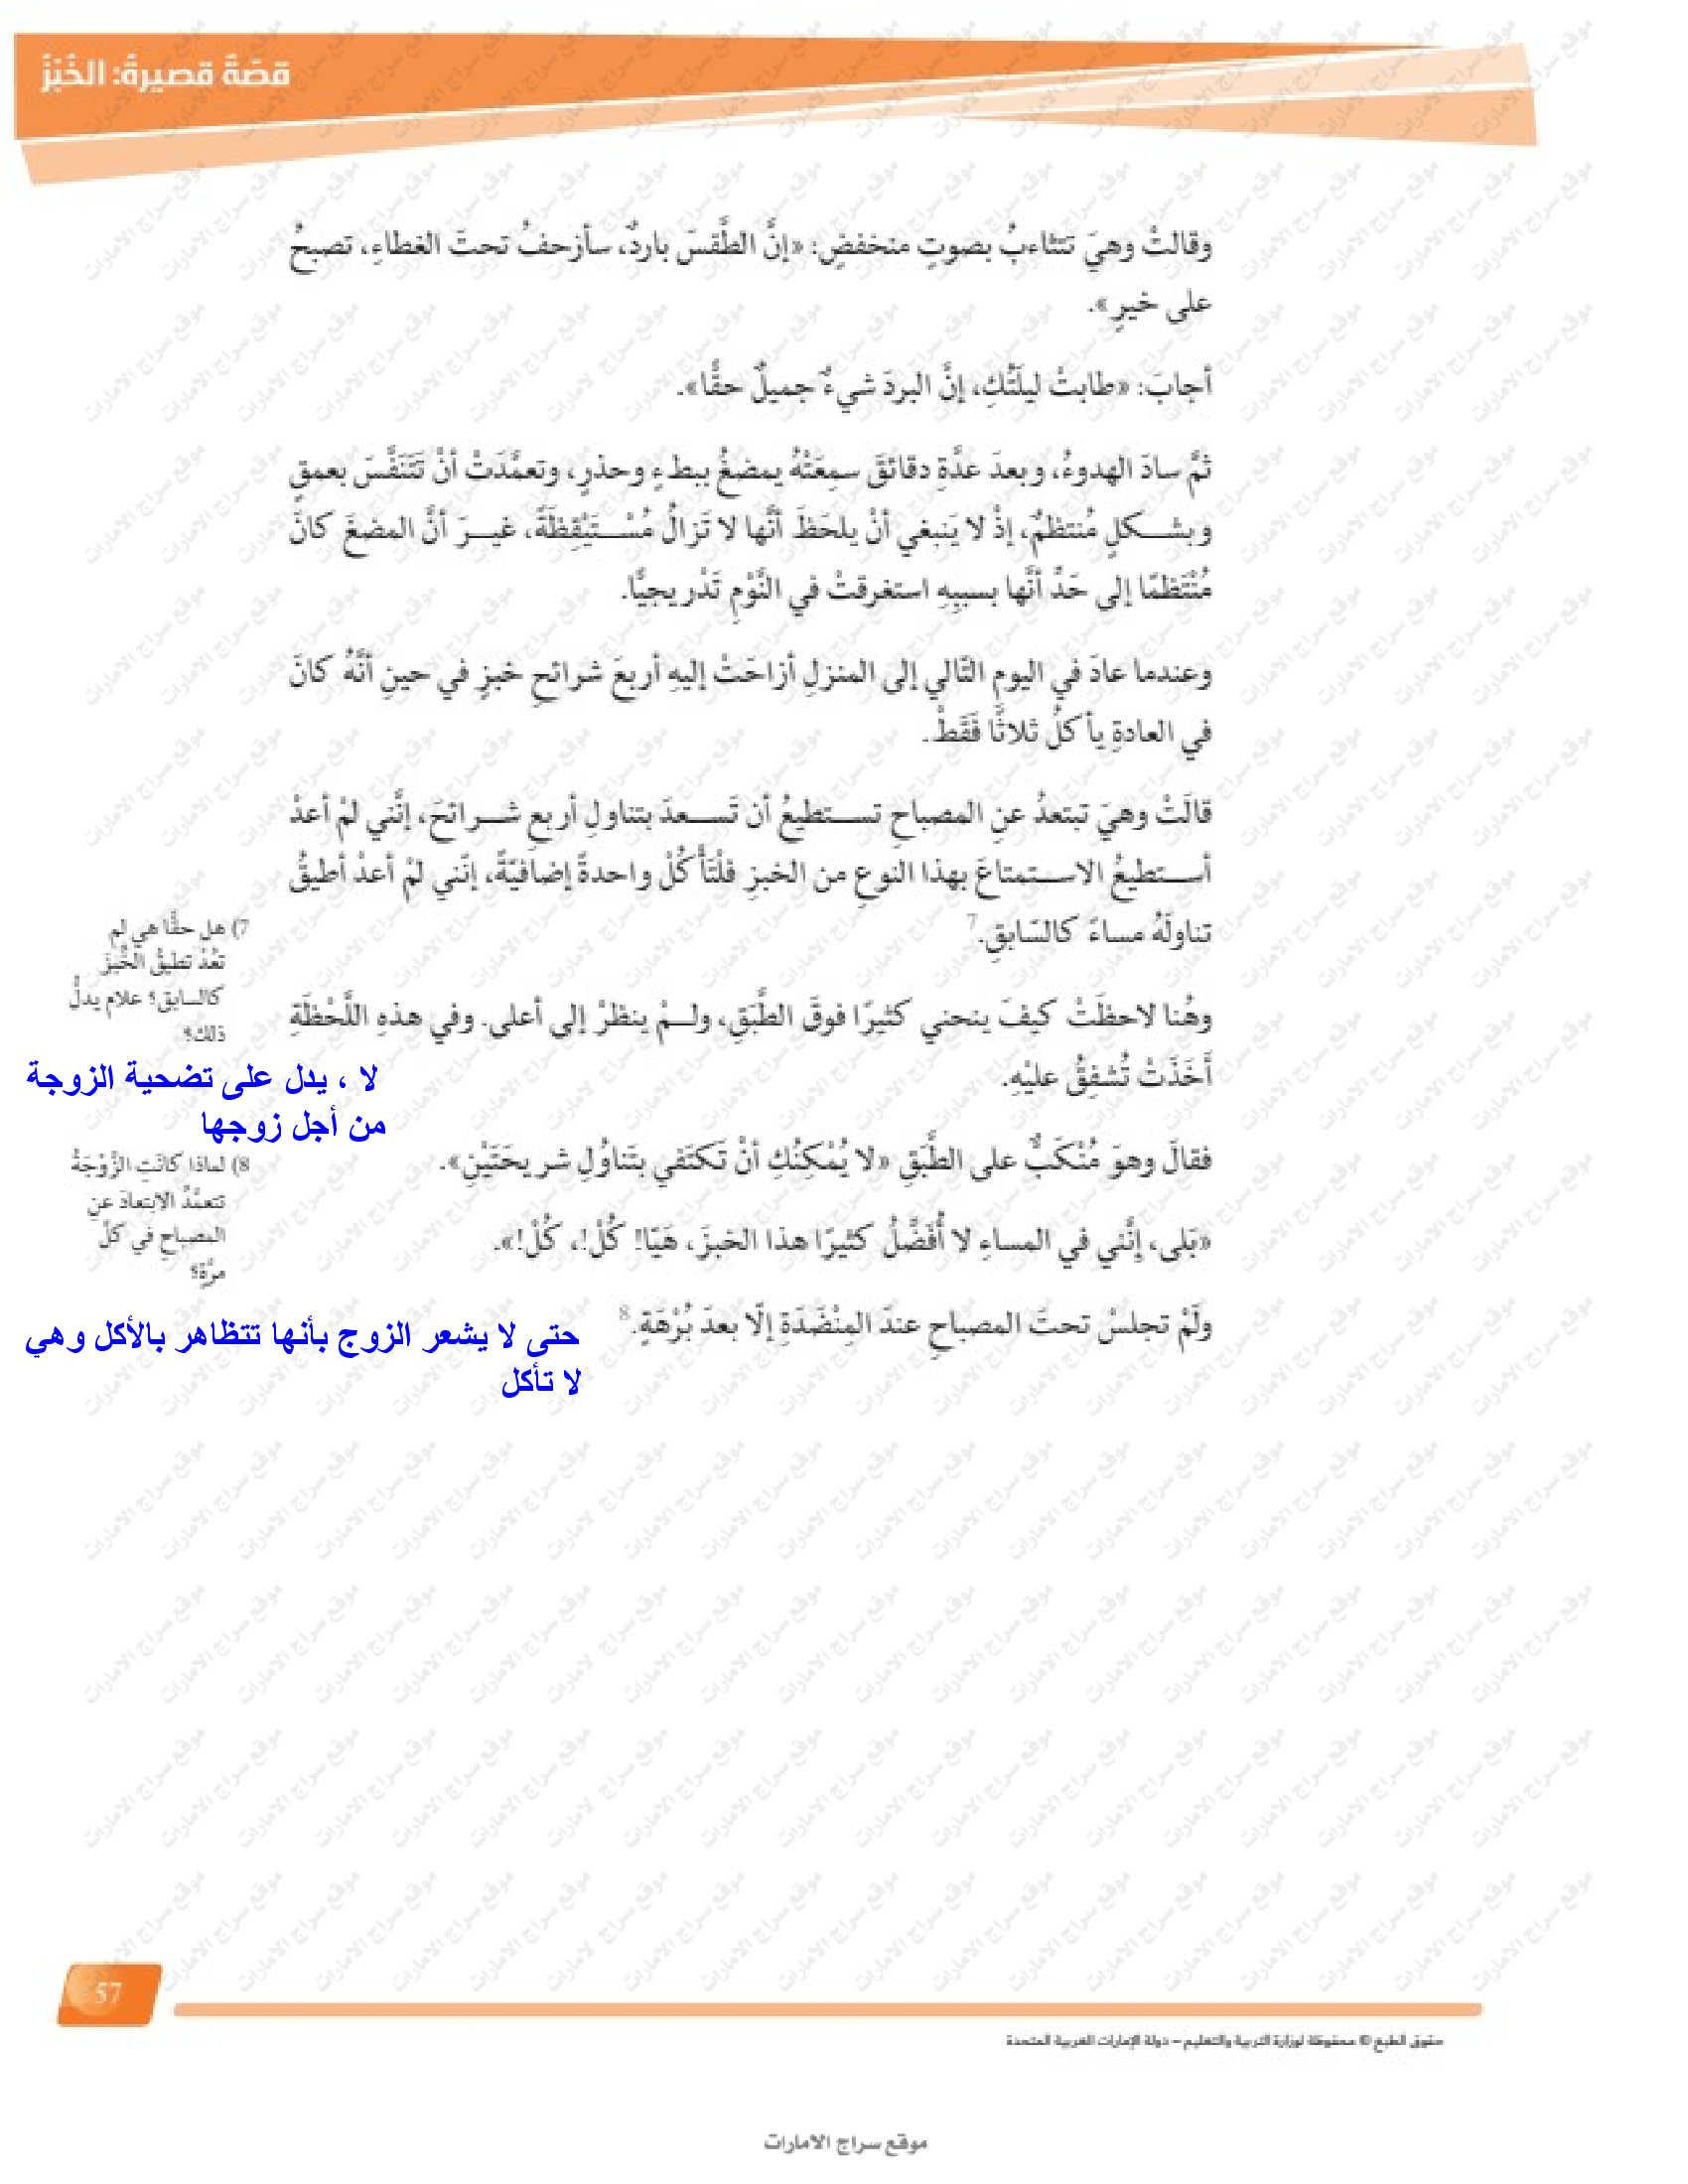 قصّةٌ قصيرةٌ: الخُبْزُ
وقالتْ وهيَ تتثاءبُ بصوتٍ منخفضٍ: «إنَّ الطَّقسَ باردٌ، سأزحفُ تحتَ الغطاءِ، تصبحُ
على خيرٍ».
أجابَ: «طابتْ ليلَتُكِ، إنَّ البردَ شيءٌ جميلٌ حقًّا».
ثمَّ سادَ الهدوءُ، وبعدَ عدَّةِ دقائقَ سمِعَتْهُ يمضغُ ببطءٍ وحذرٍ، وتعمَّدَتْ أنْ تَتَنَفَّسَ بعمقٍ
وبشكلٍ مُنتظمٌ، إذْ لا يَنبغي أنْ يلحَظَ أنَّها لا تَزالُ مُسْتَيْقِظَةً، غيرَ أنَّ المضغَ كانَ
مُنْتَظمًا إلى حَدِّ أنَّها بسببِهِ استغرقتْ في النَّوْمِ تَدْريجيًّا.
وعندما عادَ في اليومِ التّالي إلى المنزلِ أزاحَتْ إليهِ أربعَ شرائحِ خبزٍ في حينِ أنَّهُ كانَ
في العادةِ يأكلُ ثلاثًا فَقَطْ.
قالَتْ وهيَ تبتعدُ عنِ المصباحِ تستطيعُ أن تَسعدَ بتناولِ أربعِ شرائحَ، إنَّني لمْ أعدْ
أستطيعُ الاستمتاعَ بهذا النوعِ من الخبزِ فلْتَأْكُلْ واحدةً إضافيّةً، إنّني لمْ أعدْ أطيقُ
تناولَهُ مساءً كالسّابقِ.7
7) هل حقًّا هي لم
تعُدْ تطيقُ الخُبْزَ
كالسابق؟ علام يدلُّ
ذلك؟
لا ، يدل على تضحية الزوجة
من أجل زوجها
وهُنا لاحظَتْ كيفَ ينحني كثيرًا فوقَ الطَّبَقِ، ولمْ ينظرْ إلى أعلى. وفي هذهِ اللَّحْظَةِ
أَخَذَتْ تُشفِقُ عليْهِ.
فقالَ وهوَ مُنْكَبٌّ على الطَّبَقِ «لا يُمْكِنُكِ أنْ تَكتَفي بتَناوُلِ شريحَتَيْنِ».
«بَلى، إنَّني في المساءِ لا أُفَضِّلُ كثيرًا هذا الخبزَ، هَيّا! كُلْ!، كُلْ!».
ولَمْ تجلسْ تحتَ المصباحِ عندَ المِنْضَدَةِ إلّا بعدَ بُرْهَةٍ.8
8) لماذا كانَتِ الزَّوْجَةُ
تتعمَّدُ الابتعادَ عنِ
المصباحِ في كلّ
مرَّةٍ؟
حتى لا يشعر الزوج بأنها تتظاهر بالأكل وهي
لا تأكل
57
حقوق الطبع © محفوظة لوزارة التربية والتعليم – دولة الإمارات العربية المتحدة
موقع سراج الامارات